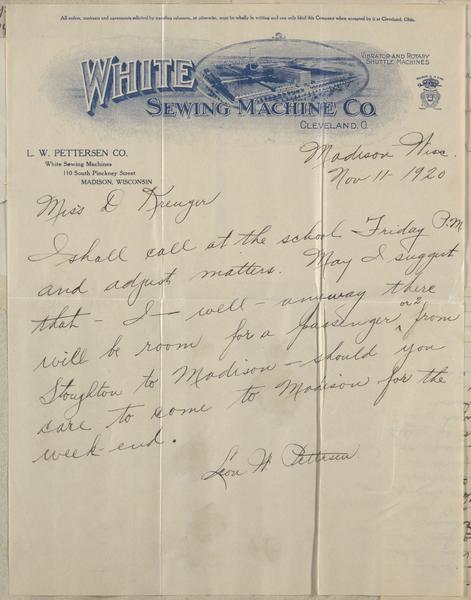 All orders, contracts and agreements solicited by traveling salesmen, or otherwise, must be wholly in writing and can only bind this Company when accepted by it at Cleveland, Ohio.
WHITE
VIBRATOR AND ROTARY
SHUTTLE MACHINES
SEWING MACHINE CO.
CLEVELAND, O.
L. W. PETTERSEN CO.
White Sewing Machines
110 South Pinckney Street
MADISON, WISCONSIN
Madison Wisc.
Nov 11 - 1920
Miss D Kreuger
I shall call at the school Friday P.M.
and adjust matters. May I suggest
that - I - well - anyway there
will be room for a passenger or 2 from
Stoughton to Madison - should you
care to come to Madison for the
week-end.
Leon W. Pettersen